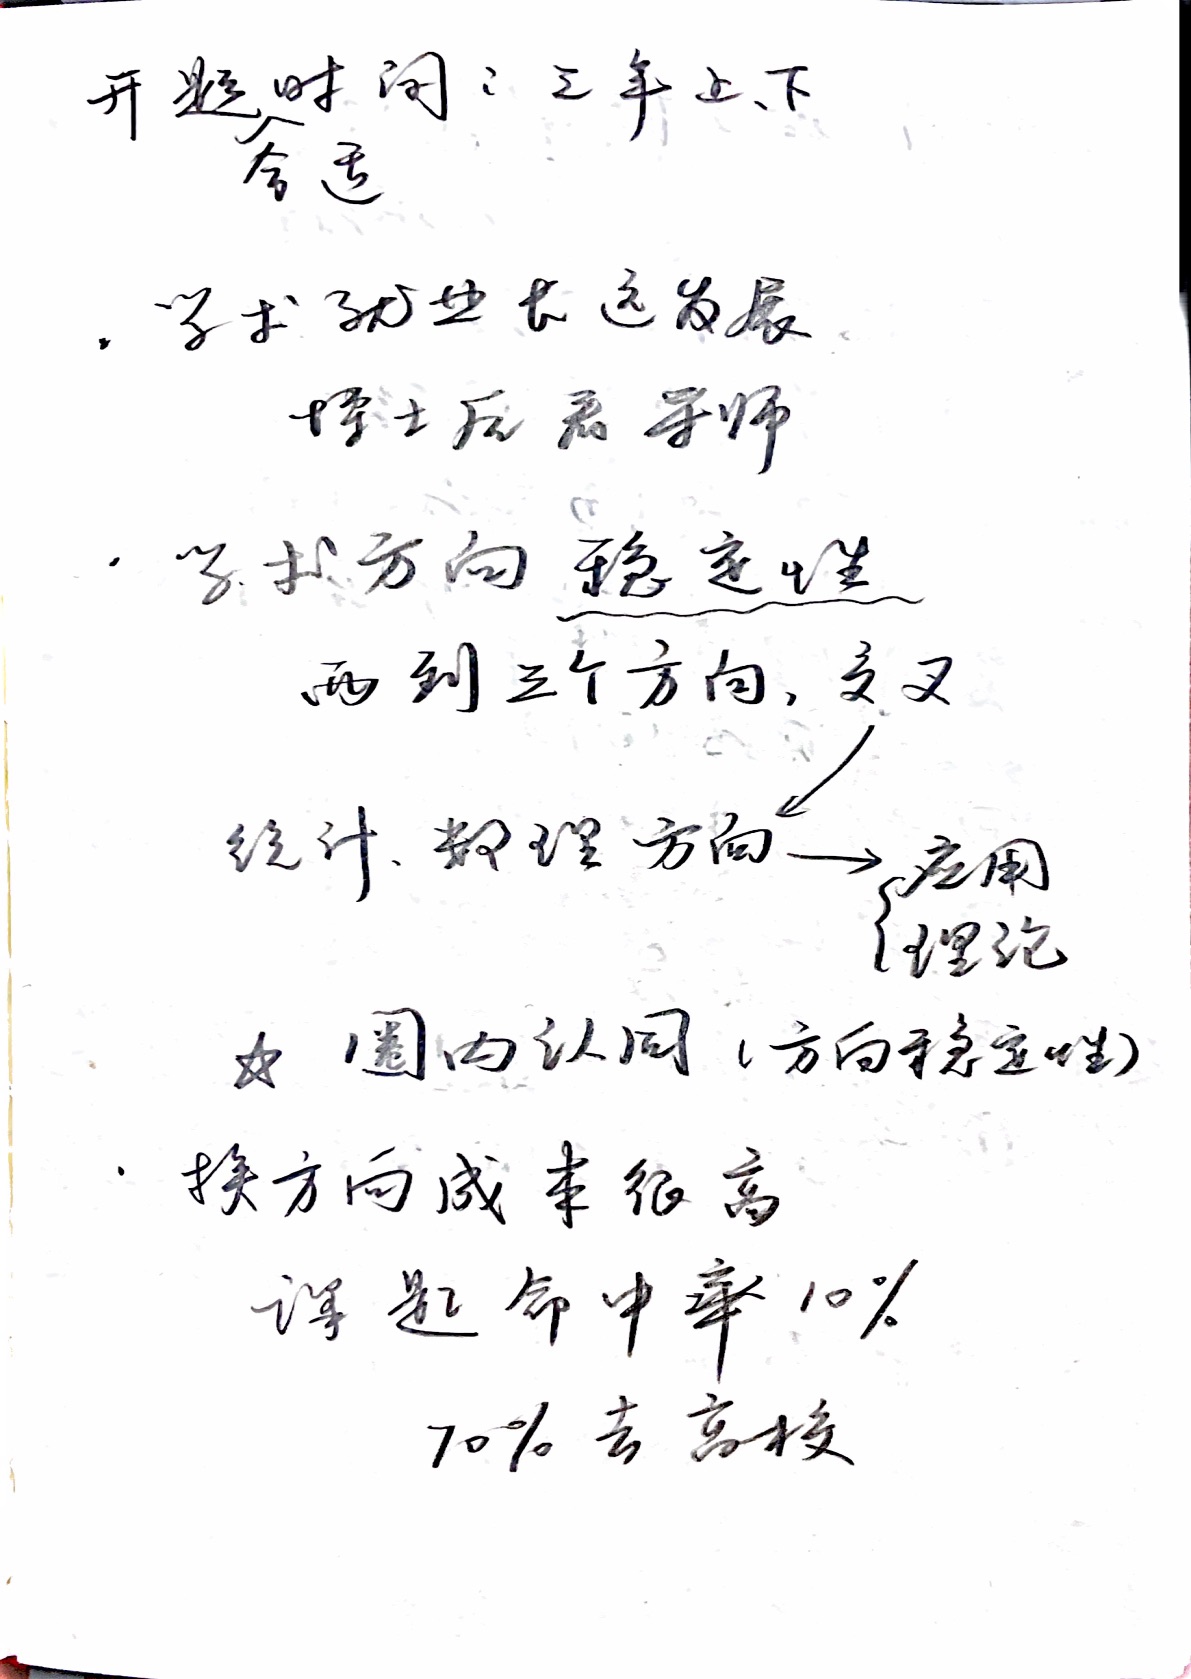 开题合适时间：三年上、下
· 学术就业长远发展
博士后看导师
· 学术方向稳定性
两到三个方向，交叉
统计、数理方向→应用
理论
☆ 圈内认同（方向稳定性）
· 换方向成本很高
课题命中率10%
70%去高校